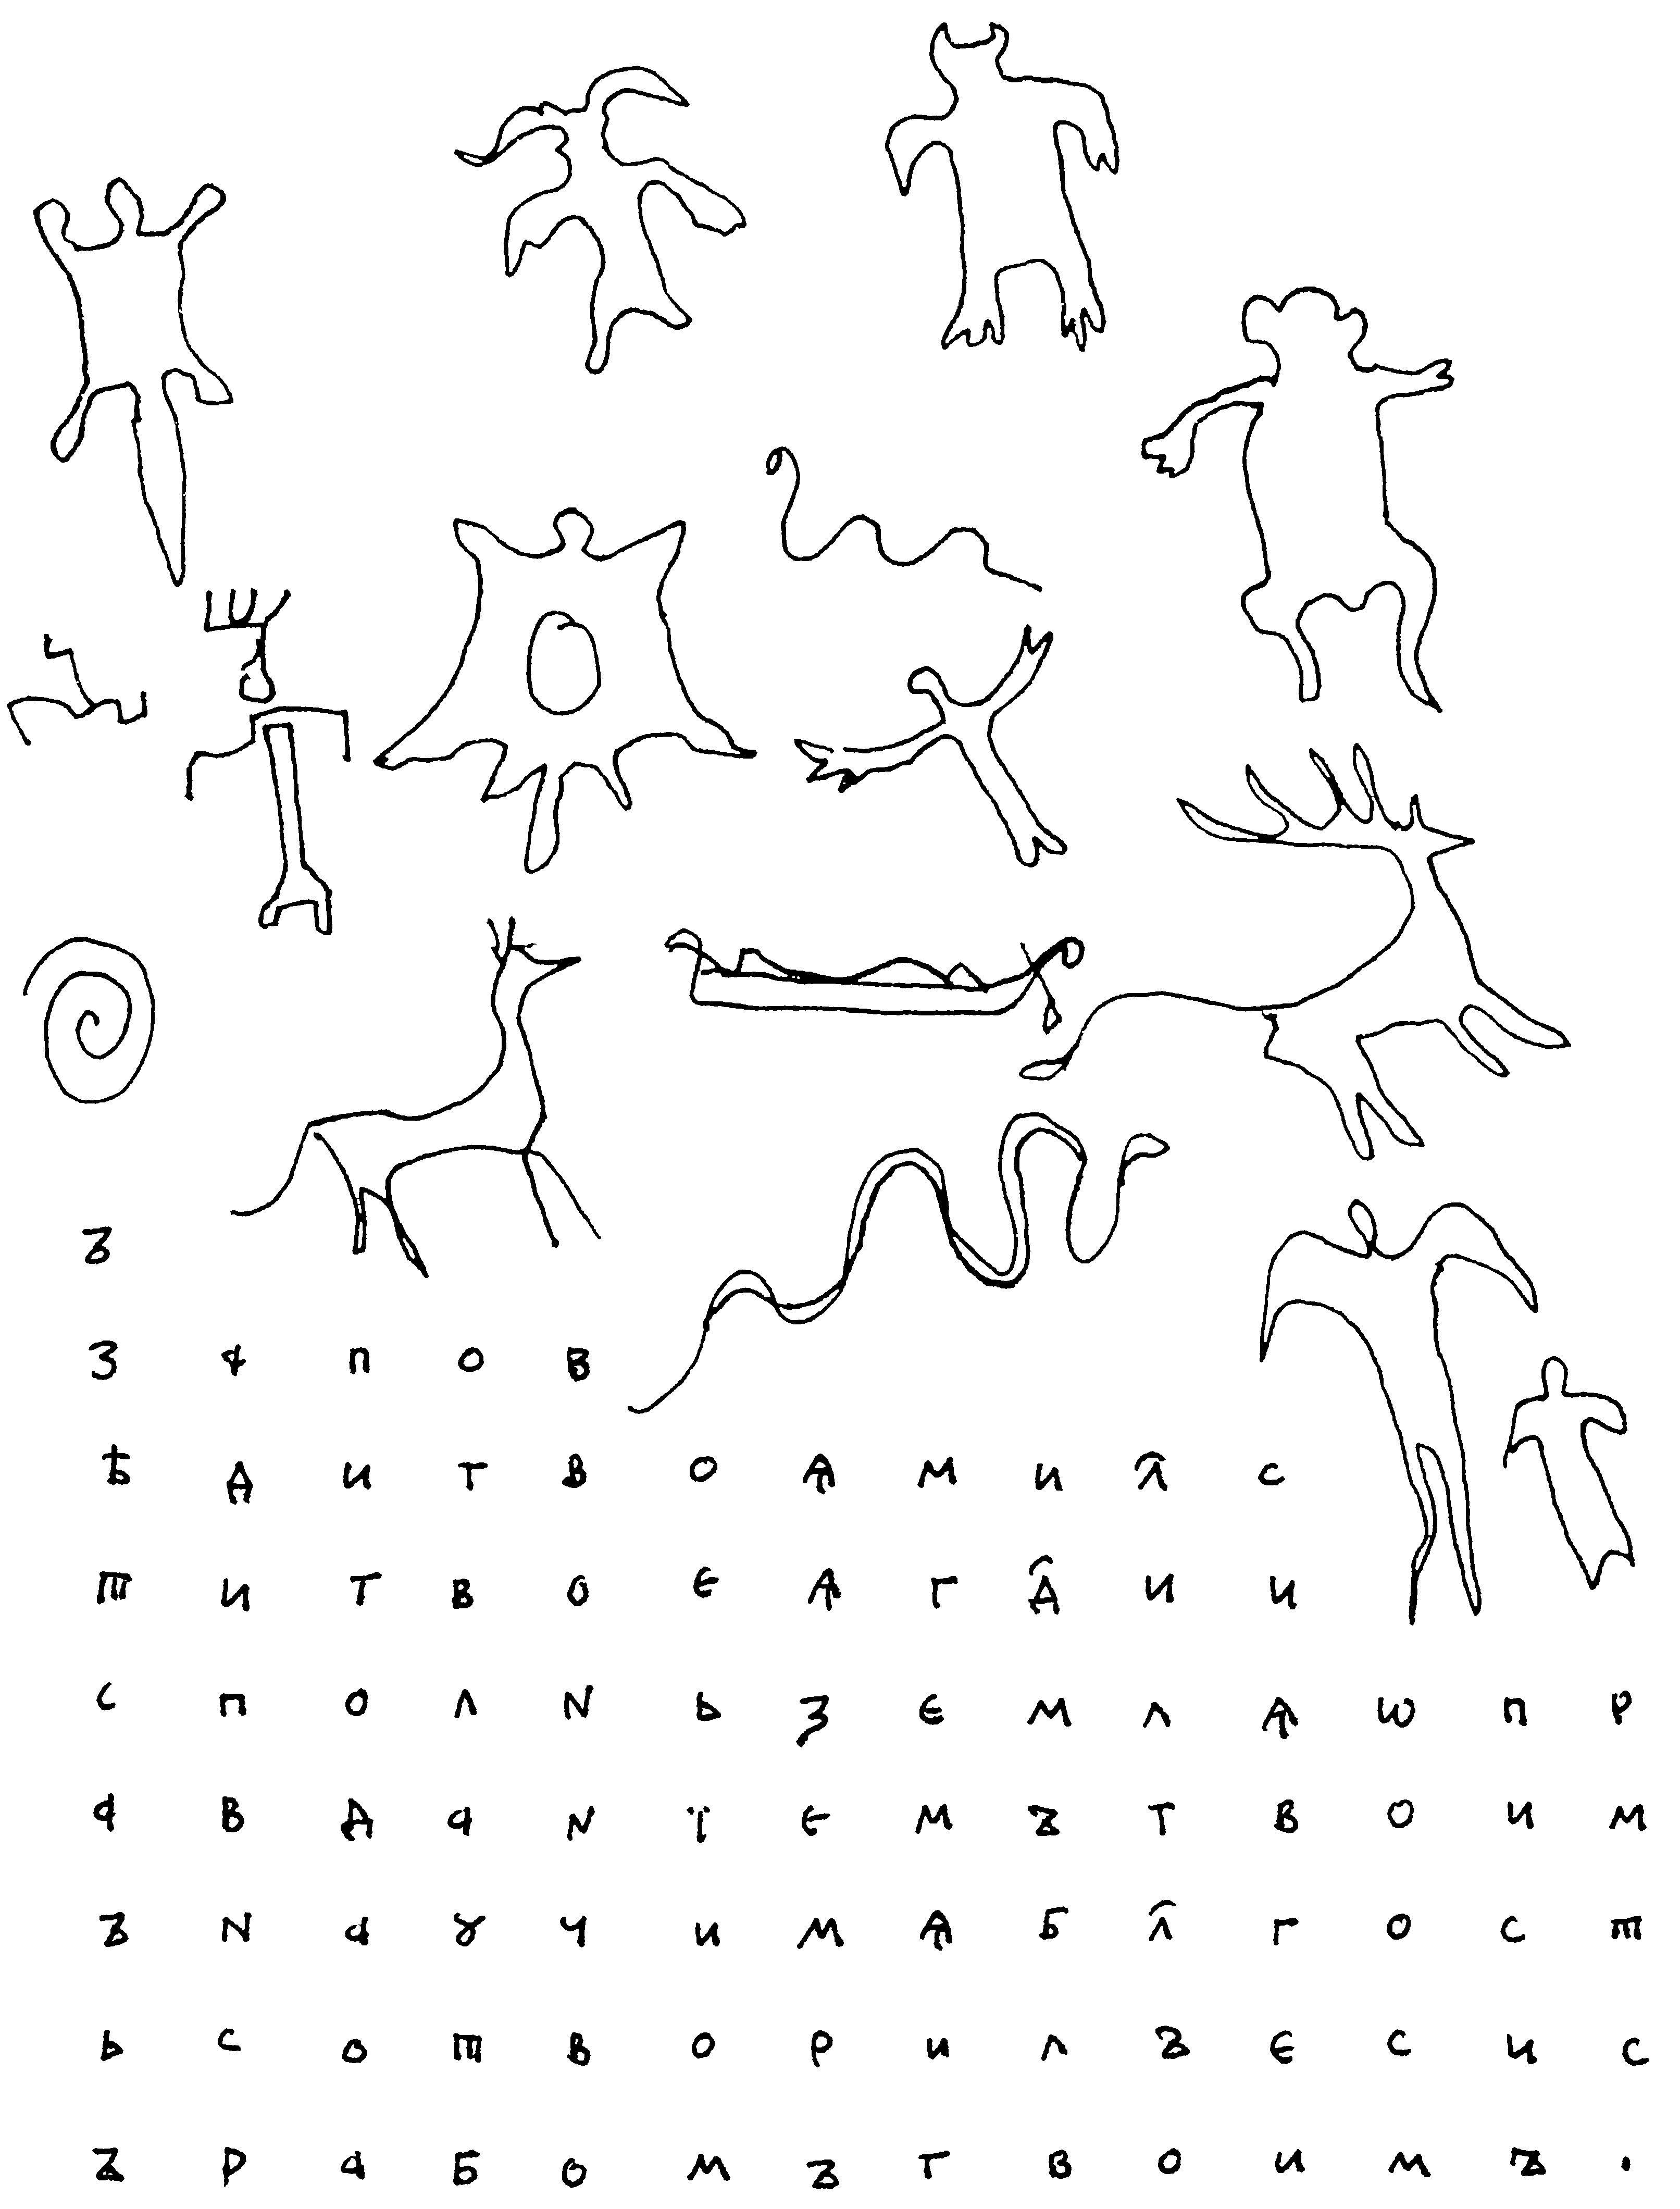 Ъ
З а п о в
Ѣ д и т в о ѧ м и л҃ с
т и т в о є ѧ г д҃ и и
с п о л н ь з є м л ѧ ѡ п р
а в д а н ї є м ъ т в о и м
ъ н а ꙋ ч и м ѧ б л҃ г о с т
ь с о т в о р и л ъ є с и с
ъ р а б о м ъ т в о и м ъ .